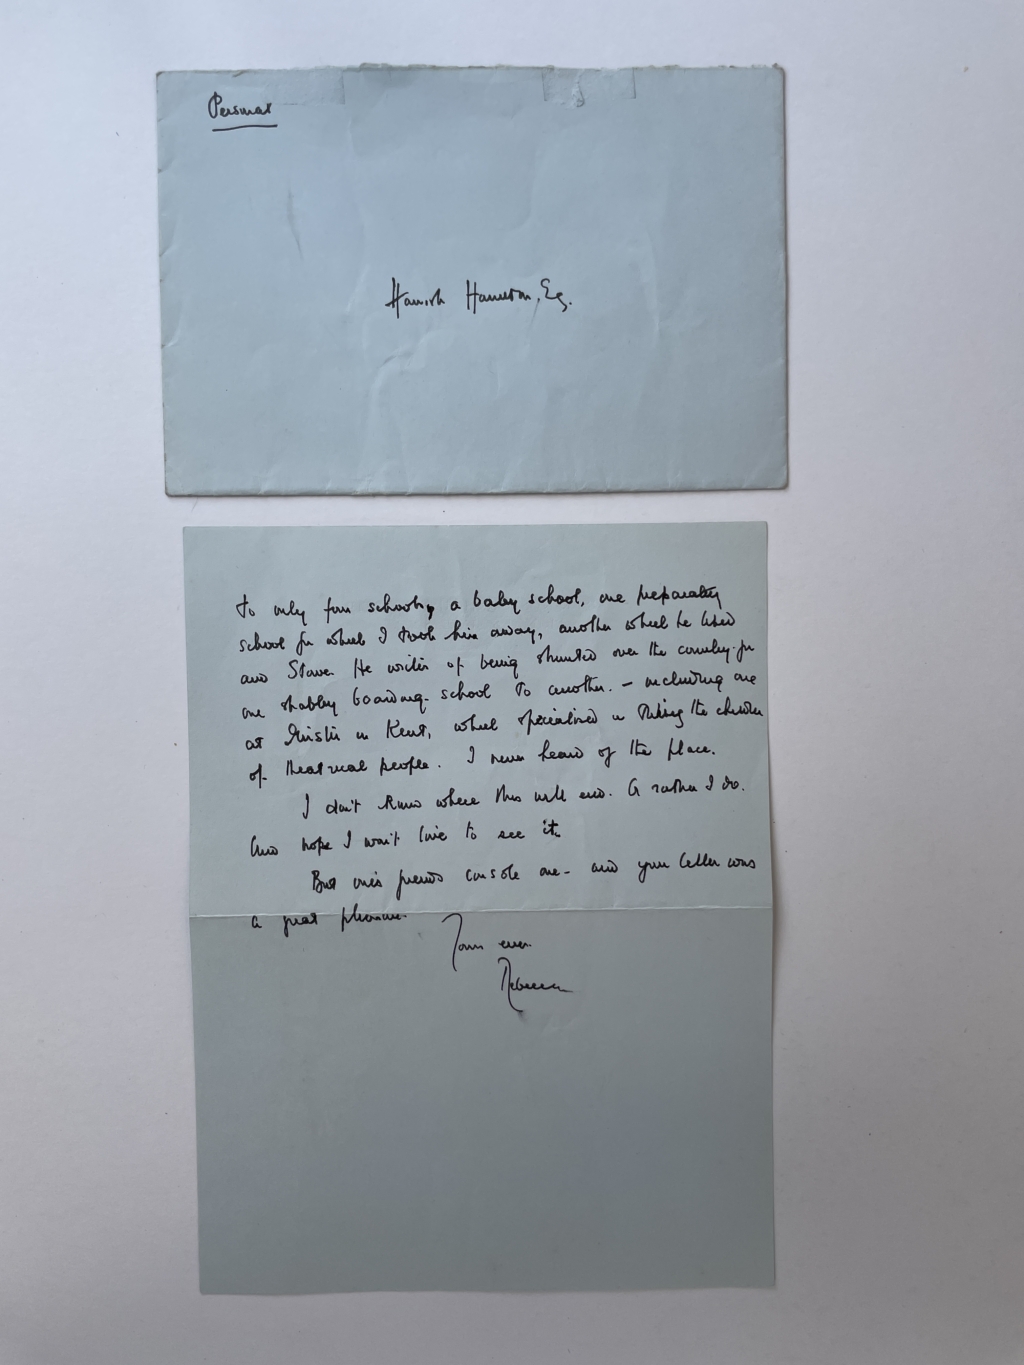 Personal
Hamish Hamilton, Esq.
to only four schools, a baby school, one preparatory
school from which I took him away, another which he liked
and Stowe. He writes of being shunted over the country from
one shabby boarding-school to another. – including one
at in Kent, which specialised in taking the children
of theatrical people. I never heard of the place.
I don't know where this will end. Or rather I do.
And hope I won't live to see it.
But one's friends console one – and your letter was
a great pleasure.
Yours ever
Rebecca